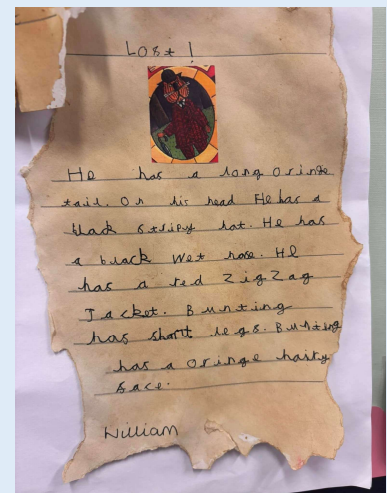 Lost !
He has a long oringe
tail. On his head He has a
black stripy hat. He has
a black wet nose. He
has a red ZigZag
Jacket. Bunting
has short legs. Bunting
has a oringe hairy
face.
William